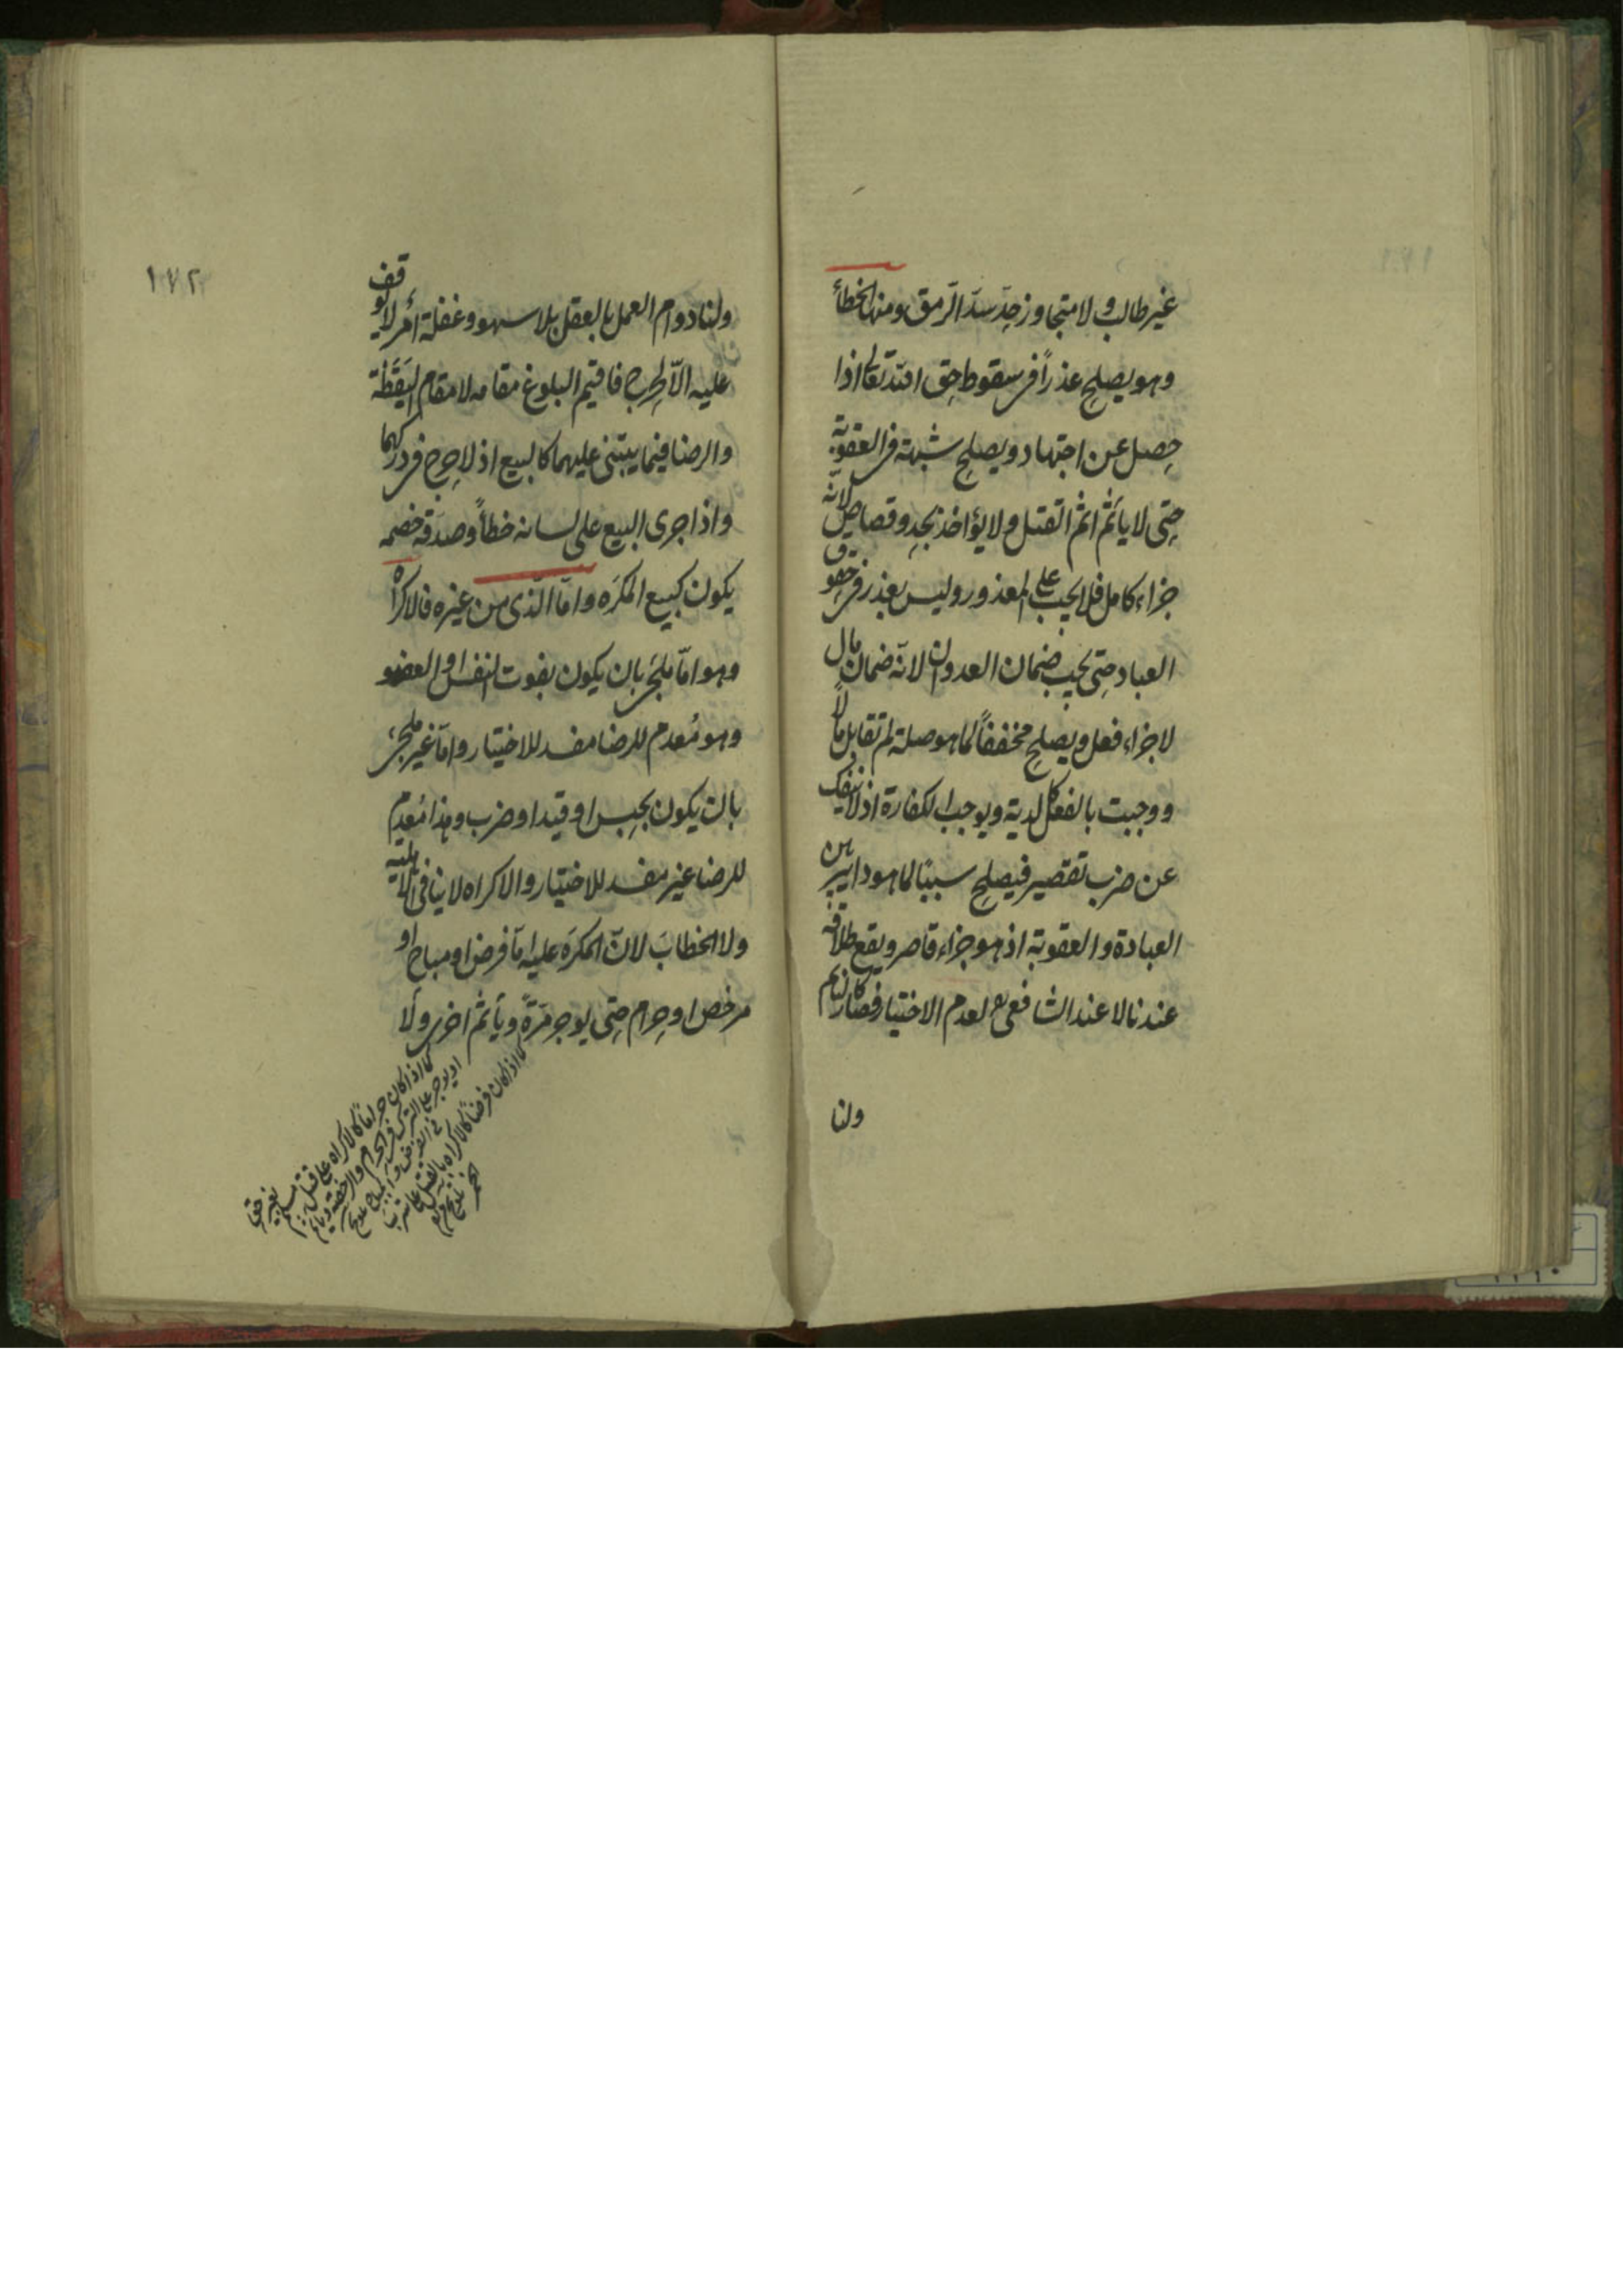 غير طالب ولا متجاوز حد سدّ الرّمق ومنها الخطأ
وهو يصلح عذراً فى سقوط حق اللّه تعالى اذا
حصل عن اجتهاد ويصلح شبهة فى العقوبة
حتى لا يأثم اثم القتل ولا يؤاخذ بحد وقصاص لانه
جزاء كامل فلا يجب على المعذور وليس بعذر فى حقوق
العباد حتى يجب ضمان العدوان لانّه ضمان مال
لا جزاء فعل ويصلح مخففاً لما هو صلة لم تقابل مالا
ووجبت بالفعل كالدية ويوجب الكفارة اذ لا ينفك
عن ضرب تقصير فيصلح سببًا لما هو دائر بين
العبادة والعقوبة اذ هو جزاء قاصر ويقع طلاقه
عندنا لا عند الشافعى رح لعدم الاختيار فصار كالنائم
ولنا
١٧٢
ولنا دوام العمل بالعقل بلا سهو وغفلة أمر لا يوقف
عليه الّا لحرج فاقيم البلوغ مقامه لا مقام اليَقَظة
والرضا فيما يبتنى عليهما كالبيع اذ لا حرج فى دركهما
واذا جرى البيع على لسانه خطأً وصدقه خصمه
يكون كبيع المكرَه وامّا الّذى من غيره فالاكراه
وهو امّا ملجئ بان يكون بفوت النفس او العضو
وهو مُعدم للرضا مفسد للاختيار وامّا غير ملجئ
بان يكون بحبس او قيد او ضرب وهذا مُعدِم
للرضا غير مفسد للاختيار والاكراه لا ينافى الاهلية
ولا الخطابَ لانّ المكرَه عليه امّا فرض او مباح او
مرخص او حرام حتى يوجر مَرّةً ويأثم اخرى ولا
كما اذا كان حراما كالاكراه على قتل مسلم بغير حق
او يوجر على الترك فى الحرام والرخصة ويأثم
فى الفرض والمباح
كما اذا كان فرضا كالاكراه بالقتل على شرب
الخمر